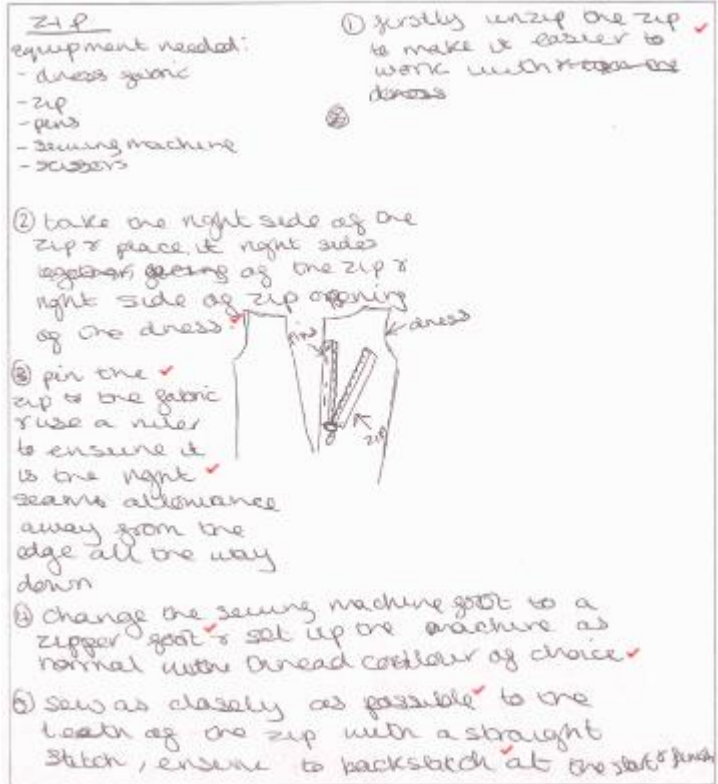 zip
equipment needed:
- dress fabric
- zip
- pens
- sewing machine
- scissors
① firstly unzip the zip
to make it easier to
work with & open the
dress
②
② take the right side of the
zip & place it right sides
together, of the zip &
right side of zip opening
of the dress.
pins
dress
zip
③ pin the
zip to the fabric
& use a ruler
to ensure it
is the right
seams allowance
away from the
edge all the way
down
④ change the sewing machine foot to a
zipper foot & set up the machine as
normal with thread colour of choice
⑤ sew as closely as possible to the
teeth of the zip with a straight
stitch, ensure to backstitch at the start & finish